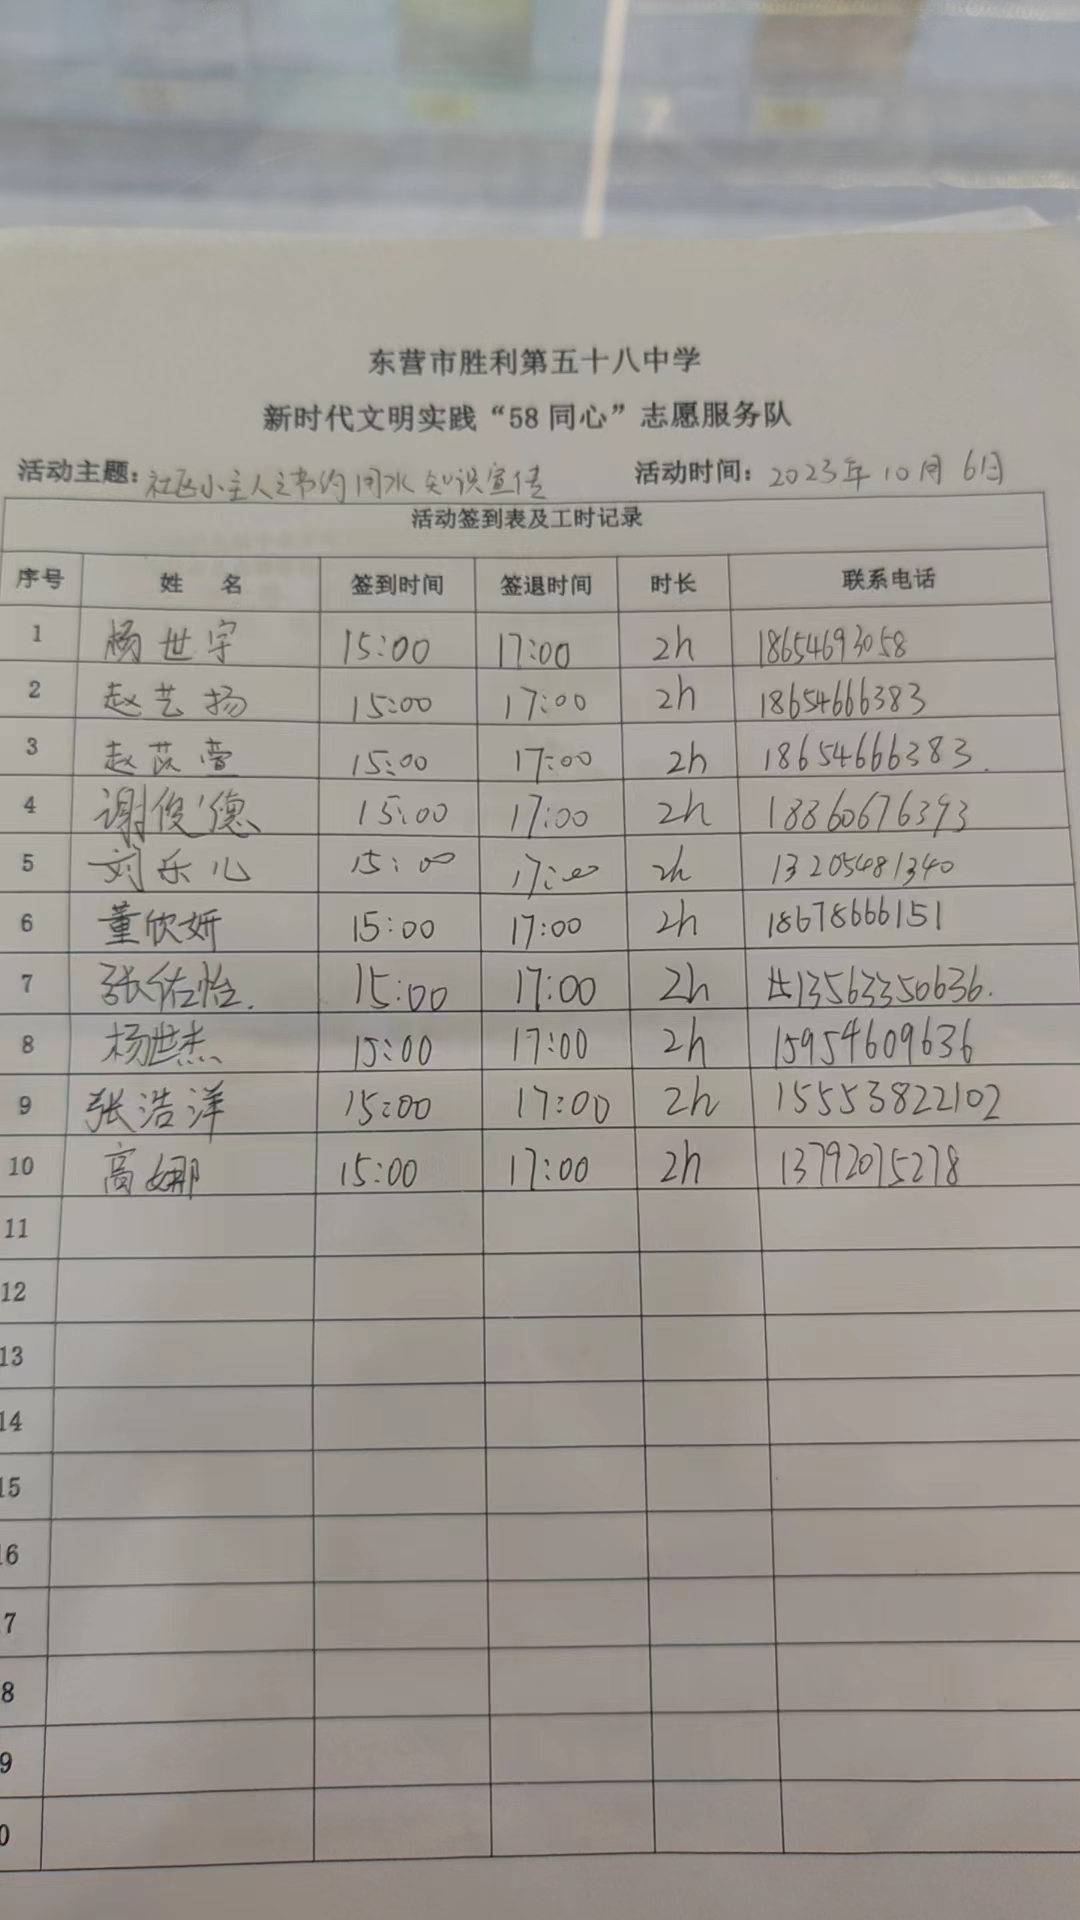 东营市胜利第五十八中学
新时代文明实践“58同心”志愿服务队
活动主题：社区小主人之节约用水知识宣传 活动时间：2023年10月6日
活动签到表及工时记录
序号 姓 名 签到时间 签退时间 时长 联系电话
1 杨世宇 15:00 17:00 2h 18654693058
2 赵艺扬 15:00 17:00 2h 18654666383
3 赵苡萱 15:00 17:00 2h 18654666383.
4 谢俊德 15:00 17:00 2h 18860676393
5 刘乐儿 15:00 17:00 2h 13205481340
6 董欣妍 15:00 17:00 2h 18678666151
7 张佑怡. 15:00 17:00 2h 13563350636.
8 杨世杰 15:00 17:00 2h 15954609636
9 张浩洋 15:00 17:00 2h 15553822102
10 高娜 15:00 17:00 2h 13792075278
11
12
13
14
15
16
7
8
9
0